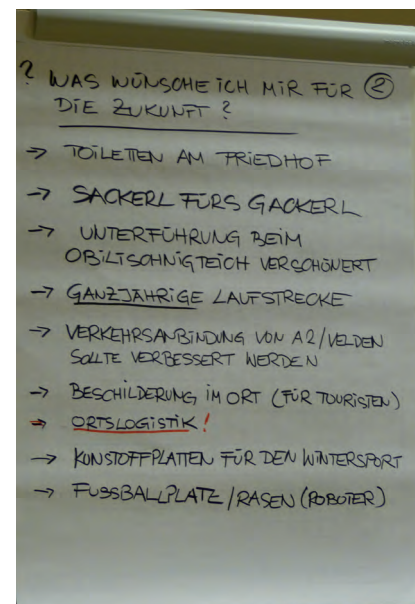 ? WAS WÜNSCHE ICH MIR FÜR ②
DIE ZUKUNFT ?
→ TOILETTEN AM FRIEDHOF
→ SACKERL FÜRS GACKERL
→ UNTERFÜHRUNG BEIM
OBILTSCHNIGTEICH VERSCHÖNERT
→ GANZJÄHRIGE LAUFSTRECKE
→ VERKEHRSANBINDUNG VON A2/VELDEN
SOLLTE VERBESSERT WERDEN
→ BESCHILDERUNG IM ORT (FÜR TOURISTEN)
→ ORTSLOGISTIK!
→ KUNSTOFFPLATTEN FÜR DEN WINTERSPORT
→ FUSSBALLPLATZ/RASEN (ROBOTER)